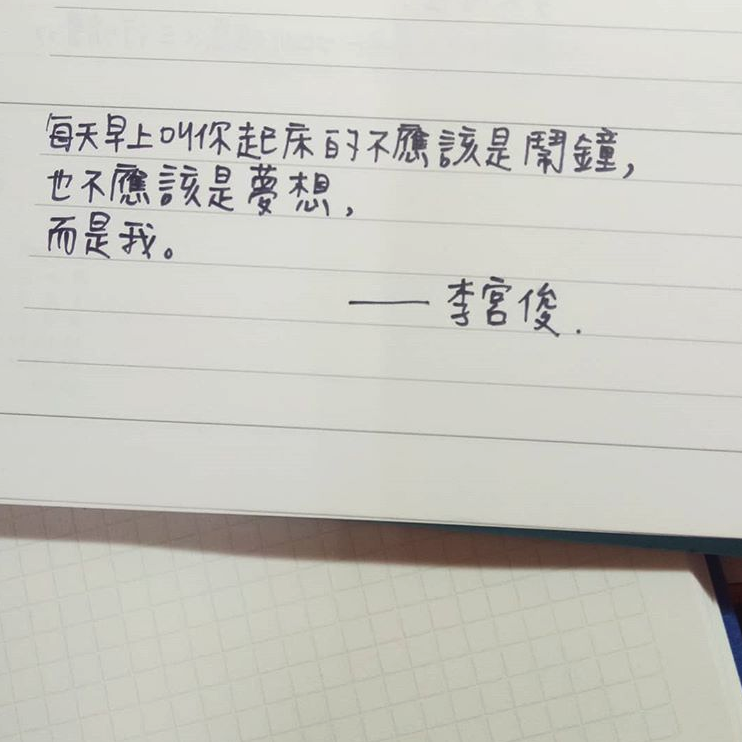 每天早上叫你起床的不應該是鬧鐘,
也不應該是夢想,
而是我。
—— 李宮俊.